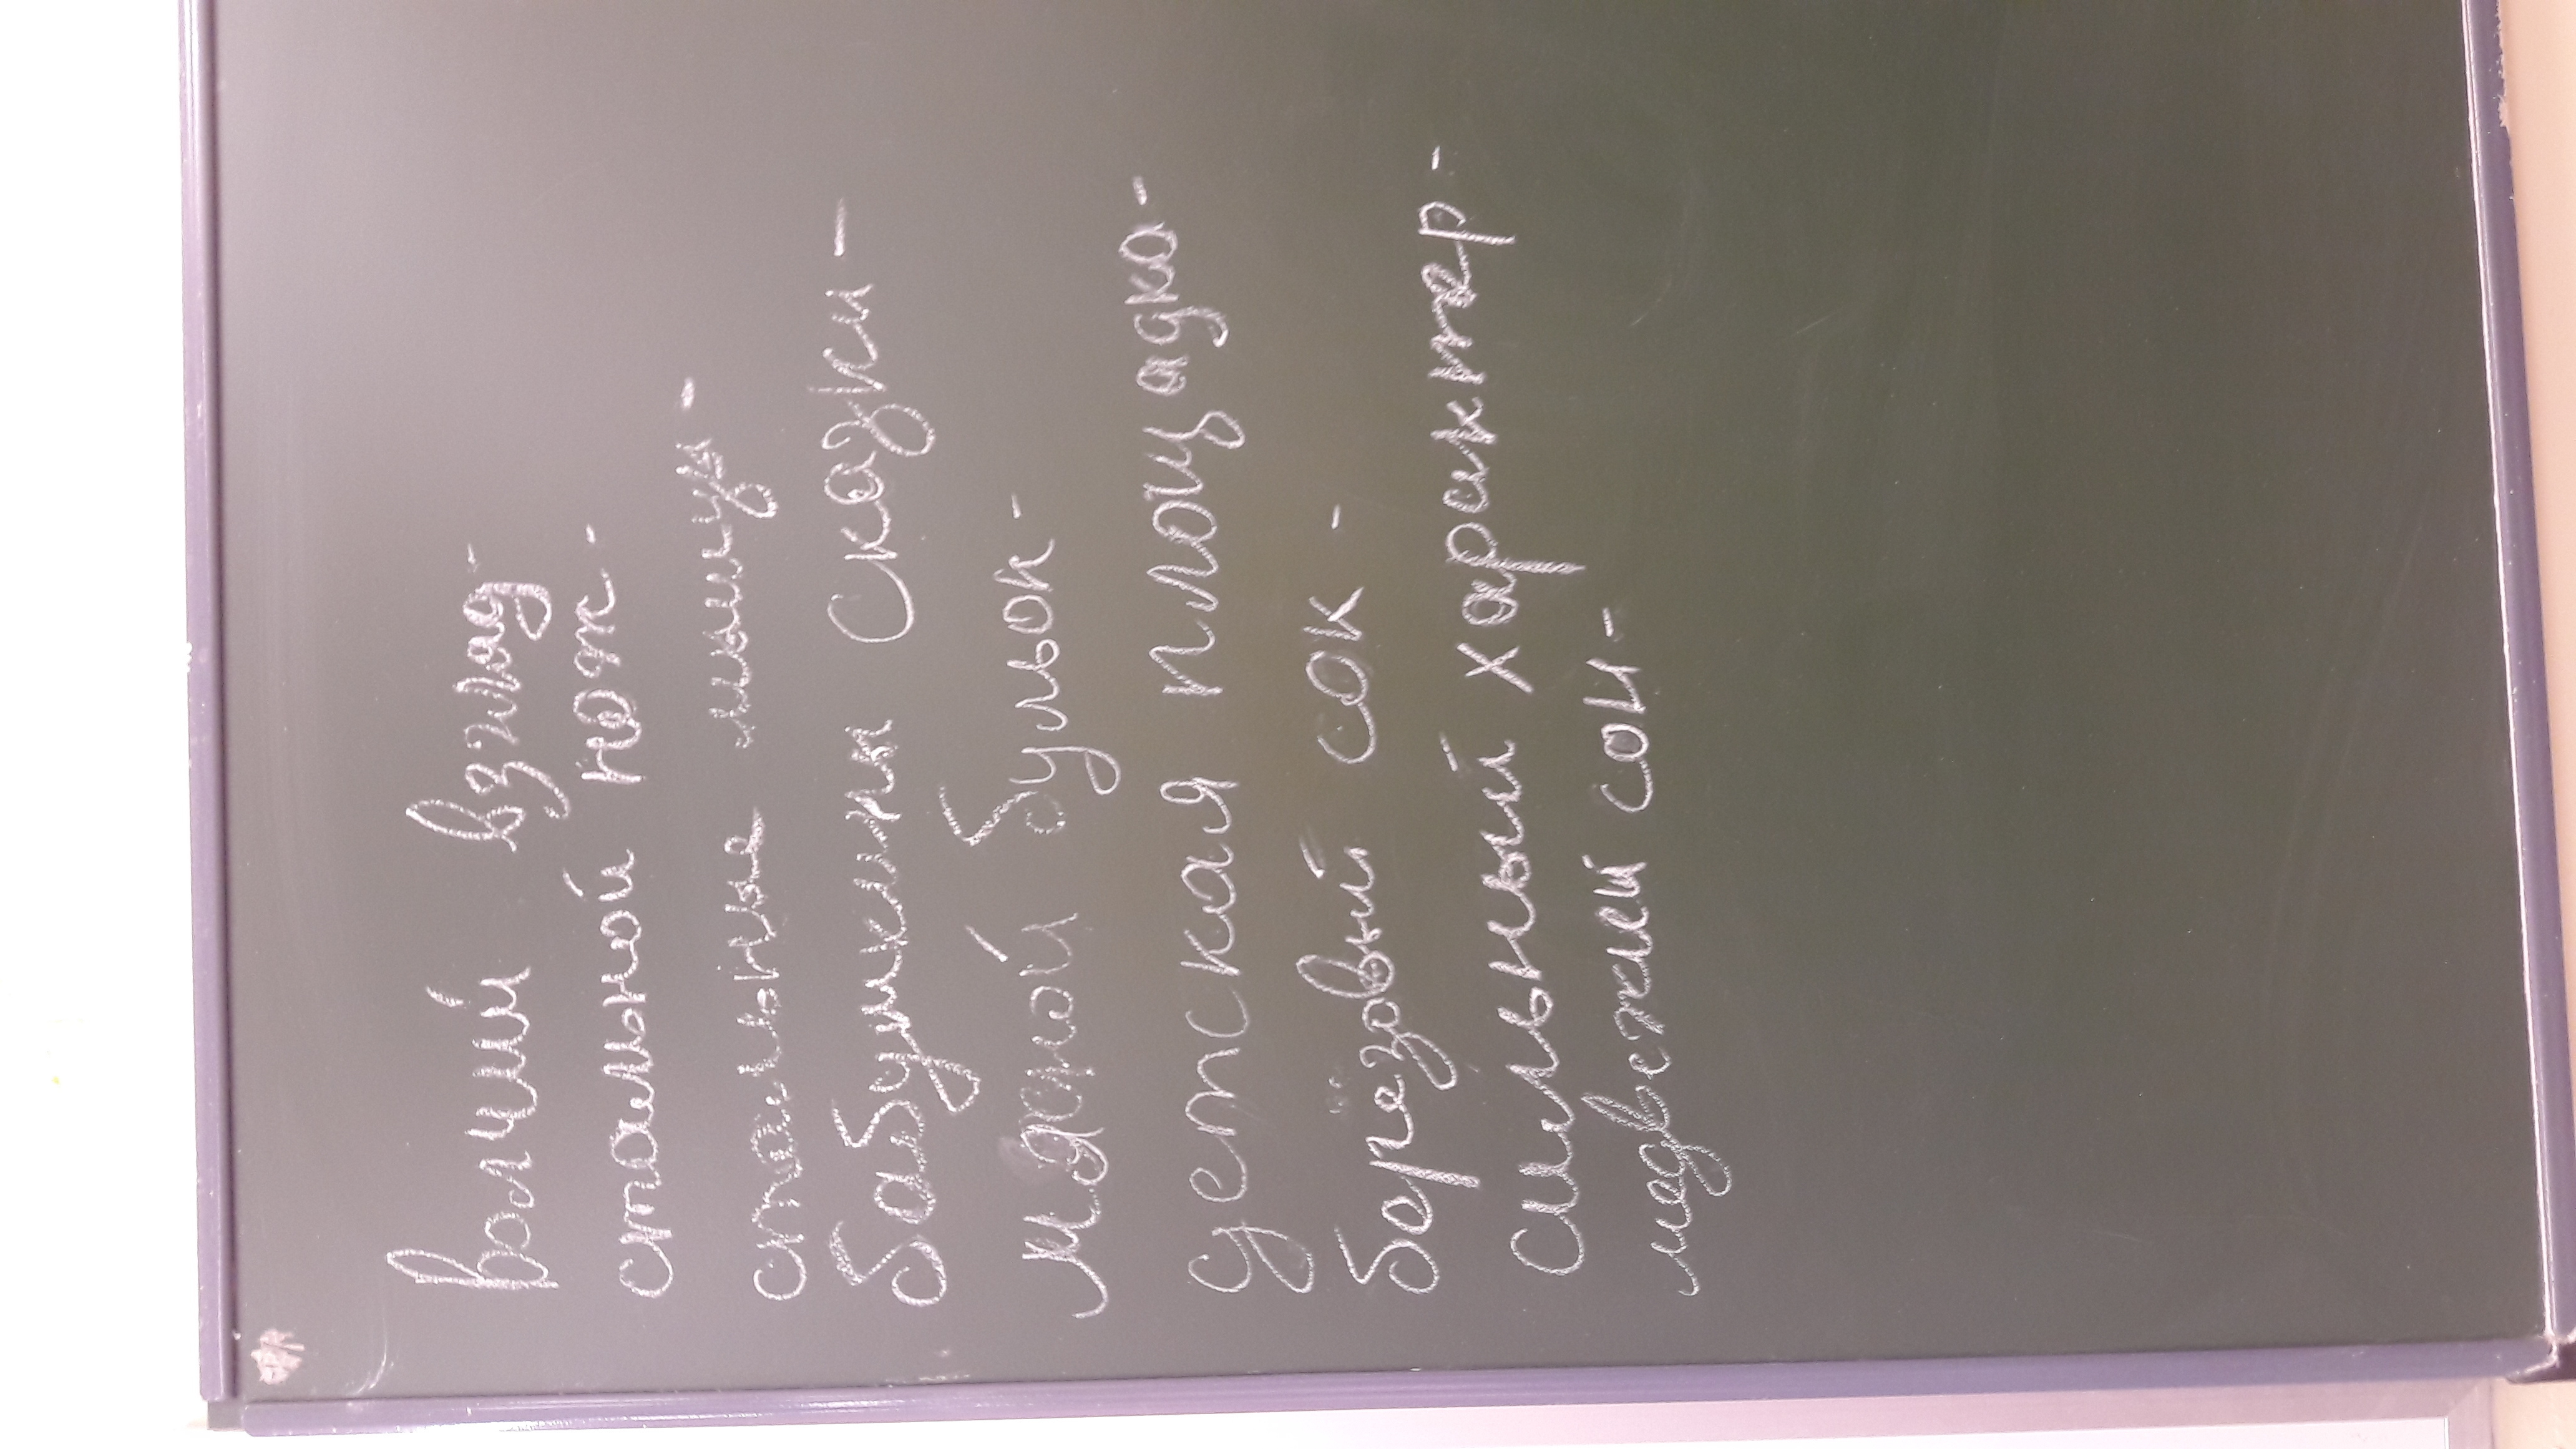 волчий взгляд-
стальной нож-
стальные мышцы-
бабушкины Сказки-
мясной бульон-
детская площадка-
березовый сок-
сильный характер-
медвежий сон-